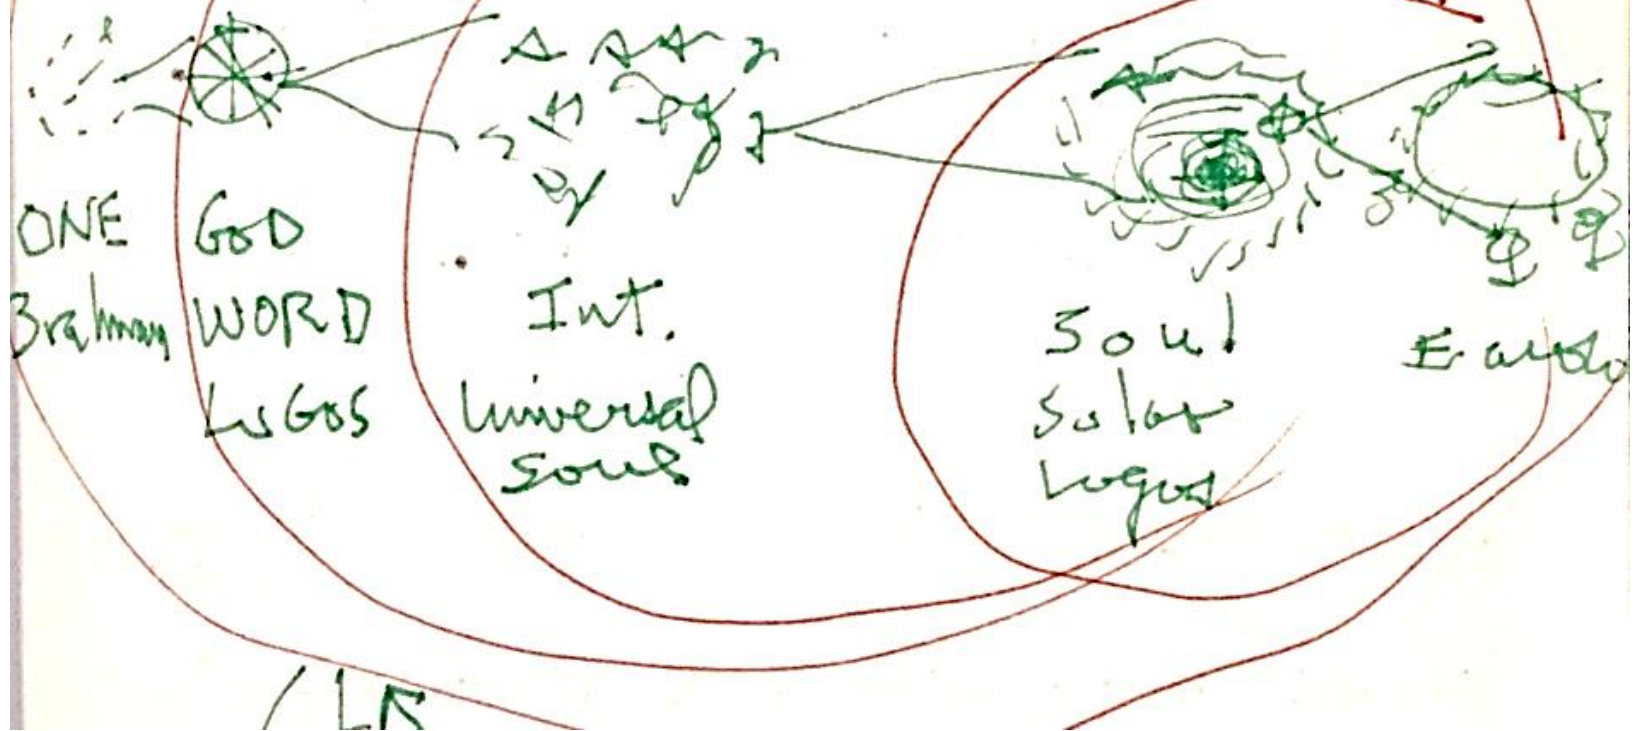 ONE
Brahman
GOD
WORD
LOGOS
Int.
Universal
Souls
Soul
Solar
Logos
Earth